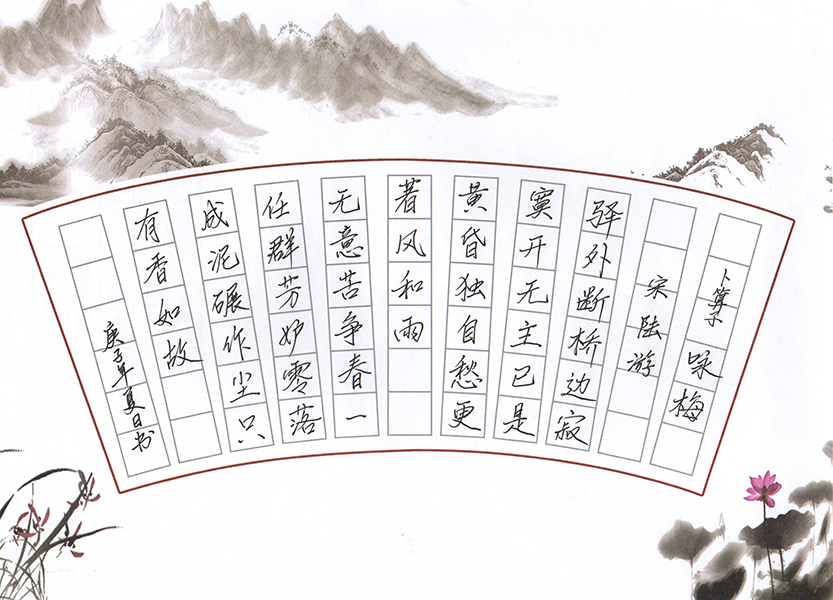 卜算子 咏梅
宋 陆游
驿外断桥边寂
寞开无主已是
黄昏独自愁更
著风和雨
无意苦争春一
任群芳妒零落
成泥碾作尘只
有香如故
庚子年夏日书